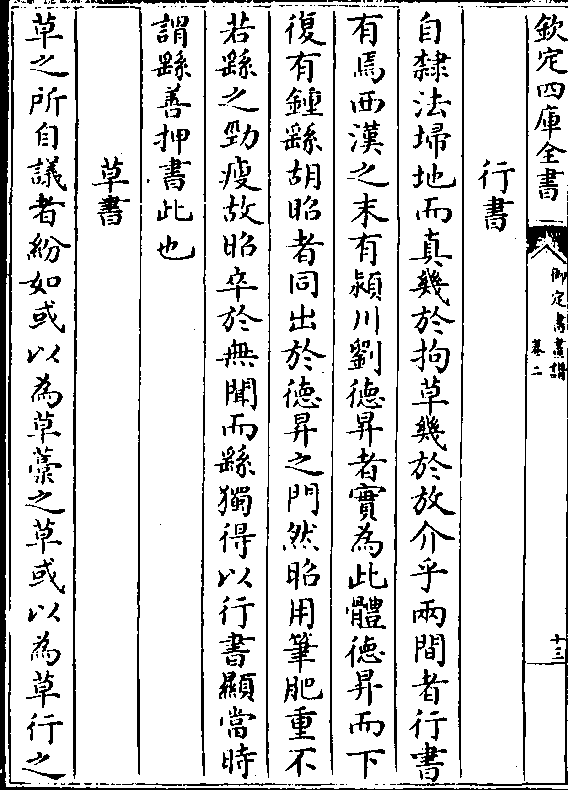 欽定四庫全書
御定書畫譜
卷二
十三
行書
自隸法埽地而真幾於拘草幾於放介乎兩間者行書
有焉西漢之末有潁川劉德昇者實為此體德昇而下
復有鍾繇胡昭者同出於德昇之門然昭用筆肥重不
若繇之勁瘦故昭卒於無聞而繇獨得以行書顯當時
謂繇善押書此也
草書
草之所自議者紛如或以為草藁之草或以為草行之